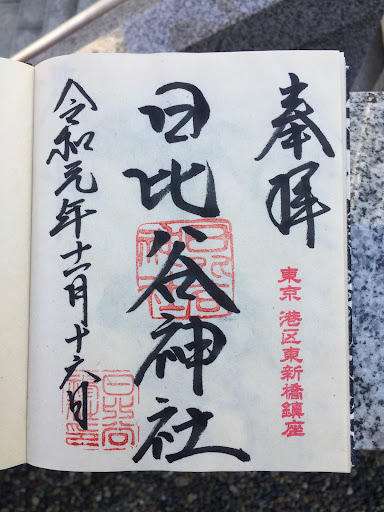 奉拝
東京 港区東新橋鎮座
日比谷神社
令和元年十一月十六日